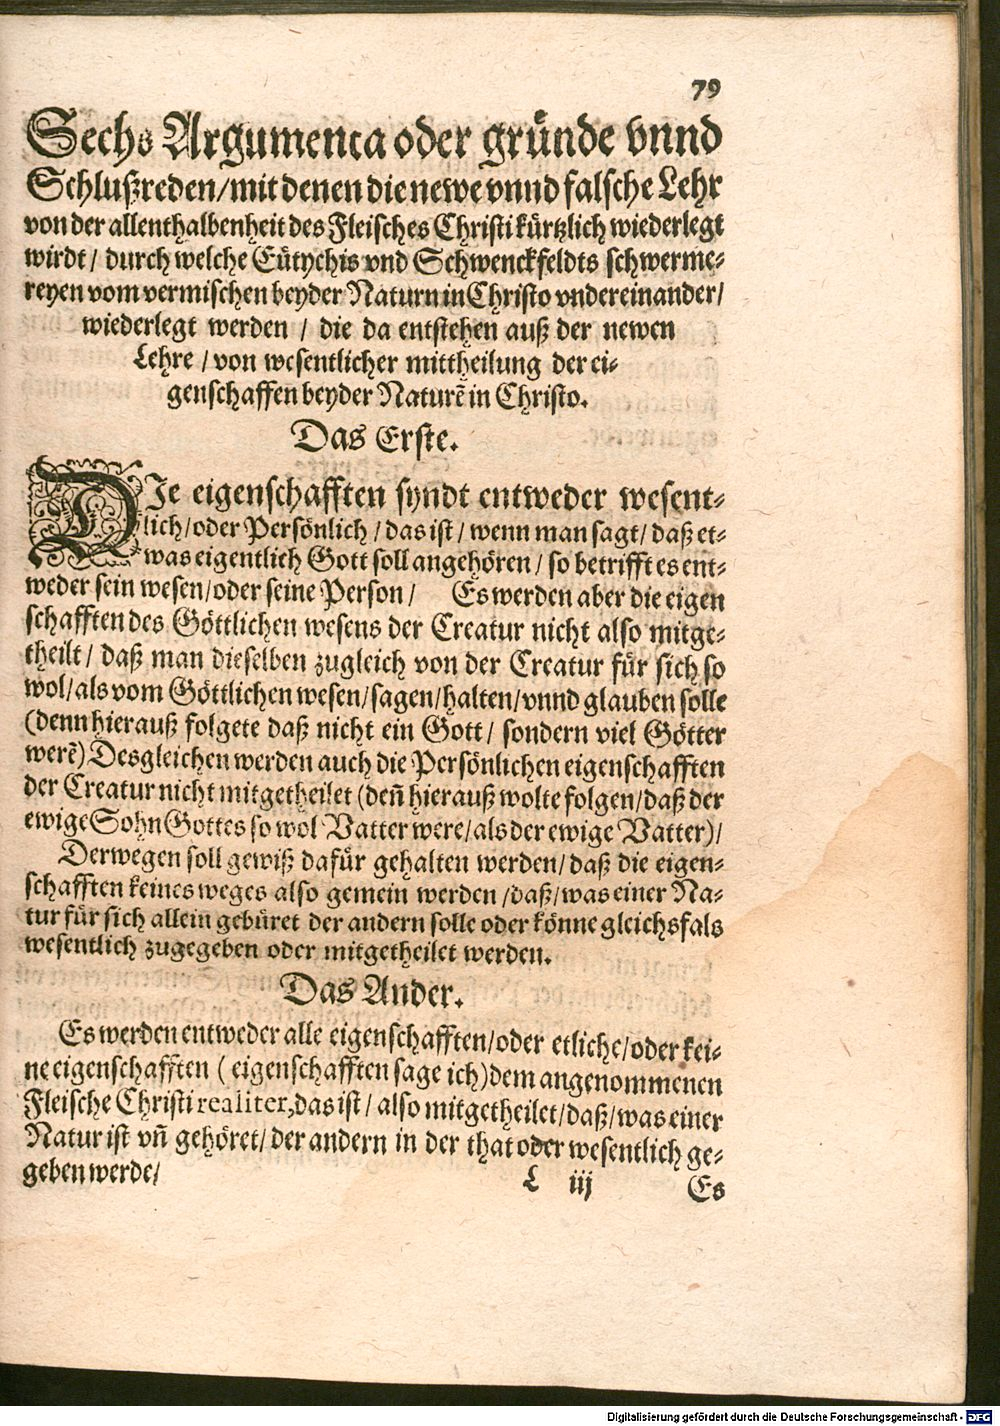 79
Sechs Argumenta oder gründe vnnd
Schlußreden/mit denen die newe vnnd falsche Lehr
von der allenthalbenheit des Fleisches Christi kürtzlich wiederlegt
wirdt / durch welche Eütychis vnd Schwenckfeldts schwerme-
reyen vom vermischen beyder Naturn in Christo vndereinander/
wiederlegt werden / die da entstehen auß der newen
Lehre / von wesentlicher mittheilung der ei-
genschaffen beyder Naturẽ in Christo.
Das Erste.
DIe eigenschafften syndt entweder wesent-
lich/oder Persönlich / das ist / wenn man sagt/ daß et-
was eigentlich Gott soll angehören / so betrifft es ent-
weder sein wesen/oder seine Person / Es werden aber die eigen
schafften des Göttlichen wesens der Creatur nicht also mitge-
theilt / daß man dieselben zugleich von der Creatur für sich so
wol/als vom Göttlichen wesen/sagen/halten/vnnd glauben solle
(denn hierauß folgete daß nicht ein Gott / sondern viel Götter
werẽ) Desgleichen werden auch die Persönlichen eigenschafften
der Creatur nicht mitgetheilet (deñ hierauß wolte folgen/daß der
ewige Sohn Gottes so wol Vatter were/als der ewige Vatter)/
Derwegen soll gewiß dafür gehalten werden/daß die eigen-
schafften keines weges also gemein werden /daß/was einer Na-
tur für sich allein gebüret der andern solle oder könne gleichsfals
wesentlich zugegeben oder mitgetheilet werden.
Das Ander.
Es werden entweder alle eigenschafften/oder etliche/oder kei-
ne eigenschafften ( eigenschafften sage ich)dem angenommenen
Fleische Christi realiter,das ist / also mitgetheilet/daß/was einer
Natur ist vñ gehöret/ der andern in der that oder wesentlich ge-
geben werde/
L iij Es
Digitalisierung gefördert durch die Deutsche Forschungsgemeinschaft - DFG